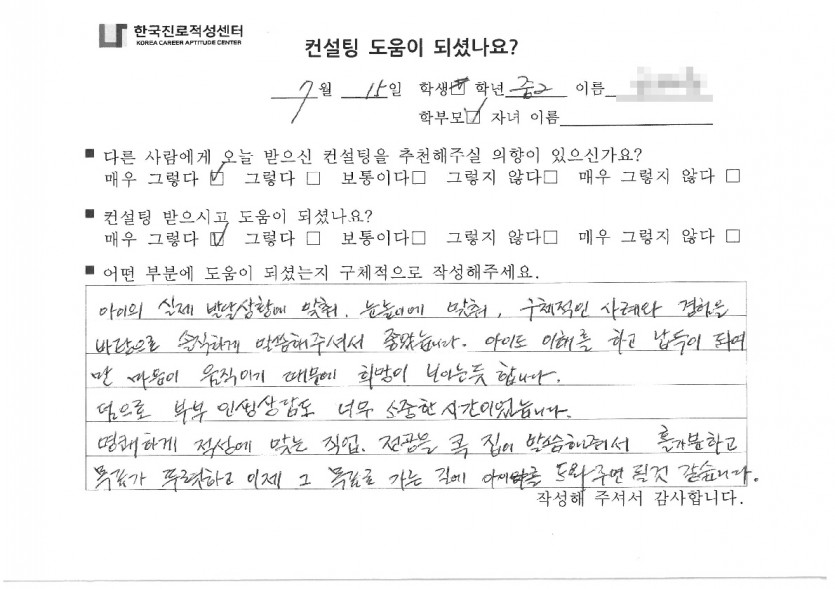 한국진로적성센터
KOREA CAREER APTITUDE CENTER
컨설팅 도움이 되셨나요?
7월 15일 학생☑ 학년 중2 이름
학부모☑ 자녀 이름
■ 다른 사람에게 오늘 받으신 컨설팅을 추천해주실 의향이 있으신가요?
매우 그렇다 ☑ 그렇다 □ 보통이다□ 그렇지 않다□ 매우 그렇지 않다 □
■ 컨설팅 받으시고 도움이 되셨나요?
매우 그렇다 ☑ 그렇다 □ 보통이다□ 그렇지 않다□ 매우 그렇지 않다 □
■ 어떤 부분에 도움이 되셨는지 구체적으로 작성해주세요.
아이의 실제 발달상황에 맞춰, 눈높이에 맞춰, 구체적인 사례와 경험을
바탕으로 솔직하게 말씀해주셔서 좋았습니다. 아이도 이해를 하고 납득이 되어
만 마음이 움직이기 때문에 희망이 보이는듯 합니다.
덤으로 부부 인생상담도 너무 소중한 시간이었습니다.
명쾌하게 적성에 맞는 직업, 전공을 콕 집어 말씀해주셔서 홀가분하고
목표가 뚜렷하고 이제 그 목표로 가는 길에 도와주면 될것 같습니다.
작성해 주셔서 감사합니다.